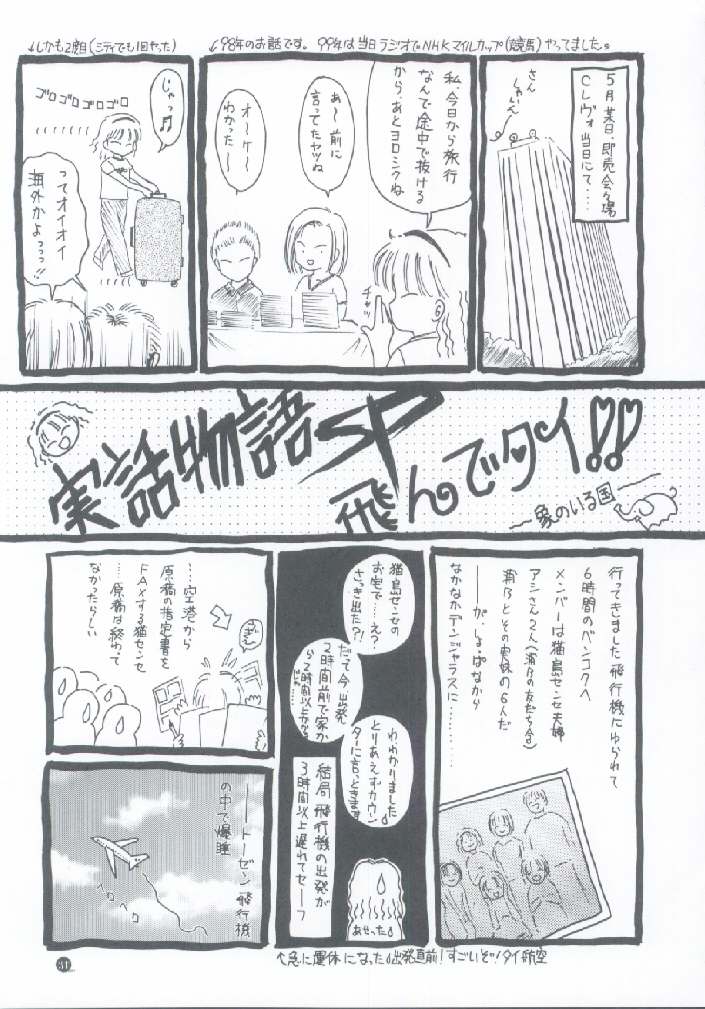 ↓98年のお話です。99年は当日ラジオでNHKマイルカップ(競馬)やってました。
↓しかも2度目(シティでも1回やった)
5月某日、即売会会場
Cレヴォ当日にて……
さん
しゃいん
私、今日から旅行
なんで途中で抜ける
から、あとヨロシクね
チャッ
あ〜前に
言ってたヤツね
オ〜ケ〜
わかったー
じゃっ♪
ゴロゴロゴロゴロ
ってオイオイ
海外かよっっっ!!
実話物語SP
飛んでタイ!!
―象のいる国―
行ってきました飛行機にゆられて
6時間のバンコクへ
メンバーは猫島センセ夫妻
アシさん2人(宵乃の友だち含)
宵乃とその実妹の6人だ
――が、しょっぱなから
なかなかデンジャラスに………
猫島センセの
お宅で…え?
さっき出た?!
だって今出発
2時間前で家か
ら2時間以上かかる
じゃ…
わわかりました
とりあえずカウン
ターに言っときます
結局飛行機の出発が
3時間以上遅れてセーフ
あせった
↑急に運休になった出発直前!すごいぞ!タイ航空
……空港から
原稿の指定書を
FAXする猫センセ
……原稿は終わって
なかったらしい
――トーゼン飛行機
の中で爆睡
ヘロヘロ
31